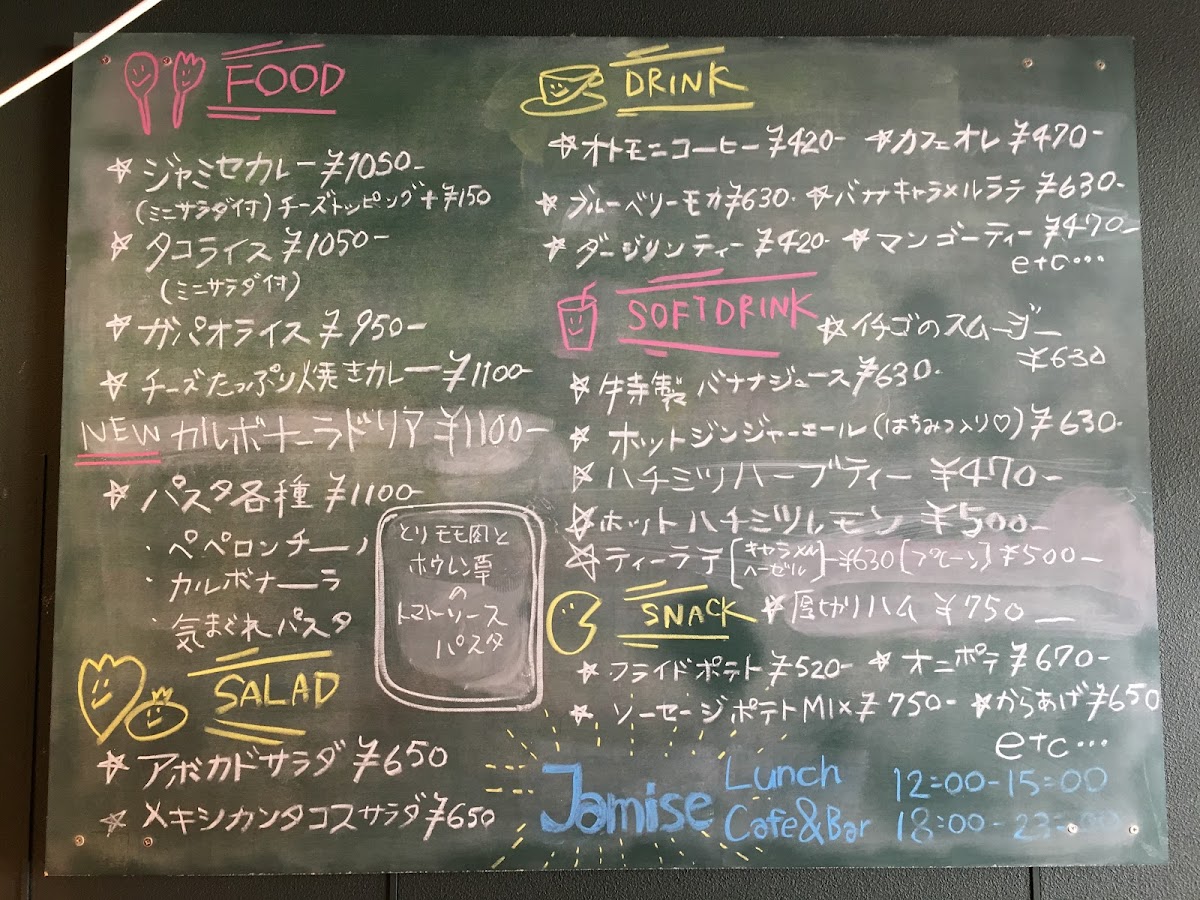 FOOD
☆ジャミセカレー ¥1050-
(ミニサラダ付) チーズトッピング+¥150
☆タコライス ¥1050-
(ミニサラダ付)
☆ガパオライス ¥950-
☆チーズたっぷり焼きカレー ¥1100-
NEW カルボナーラドリア ¥1100-
☆パスタ各種 ¥1100-
・ペペロンチーノ
・カルボナーラ
・気まぐれパスタ
とりモモ肉と
ホウレン草
の
トマトソース
パスタ
SALAD
☆アボカドサラダ ¥650
☆メキシカンタコスサラダ ¥650
DRINK
☆オトモニコーヒー ¥420- ☆カフェオレ ¥470-
☆ブルーベリーモカ ¥630- ☆バナナキャラメルラテ ¥630-
☆ダージリンティー ¥420- ☆マンゴーティー ¥470-
etc…
SOFTDRINK
☆イチゴのスムージー
¥630
☆牛寺製バナナジュース ¥630-
☆ホットジンジャーエール(はちみつ入り♡) ¥630-
☆ハチミツハーブティー ¥470-
☆ホットハチミツレモン ¥500-
☆ティーラテ [キャラメル ヘーゼル] ¥630 [プレーン] ¥500-
SNACK
☆厚切りハム ¥750-
☆フライドポテト ¥520- ☆オニポテ ¥670-
☆ソーセージポテトMIX ¥750- ☆からあげ ¥650
etc…
Jamise
Lunch 12:00-15:00
Cafe&Bar 18:00-23:00